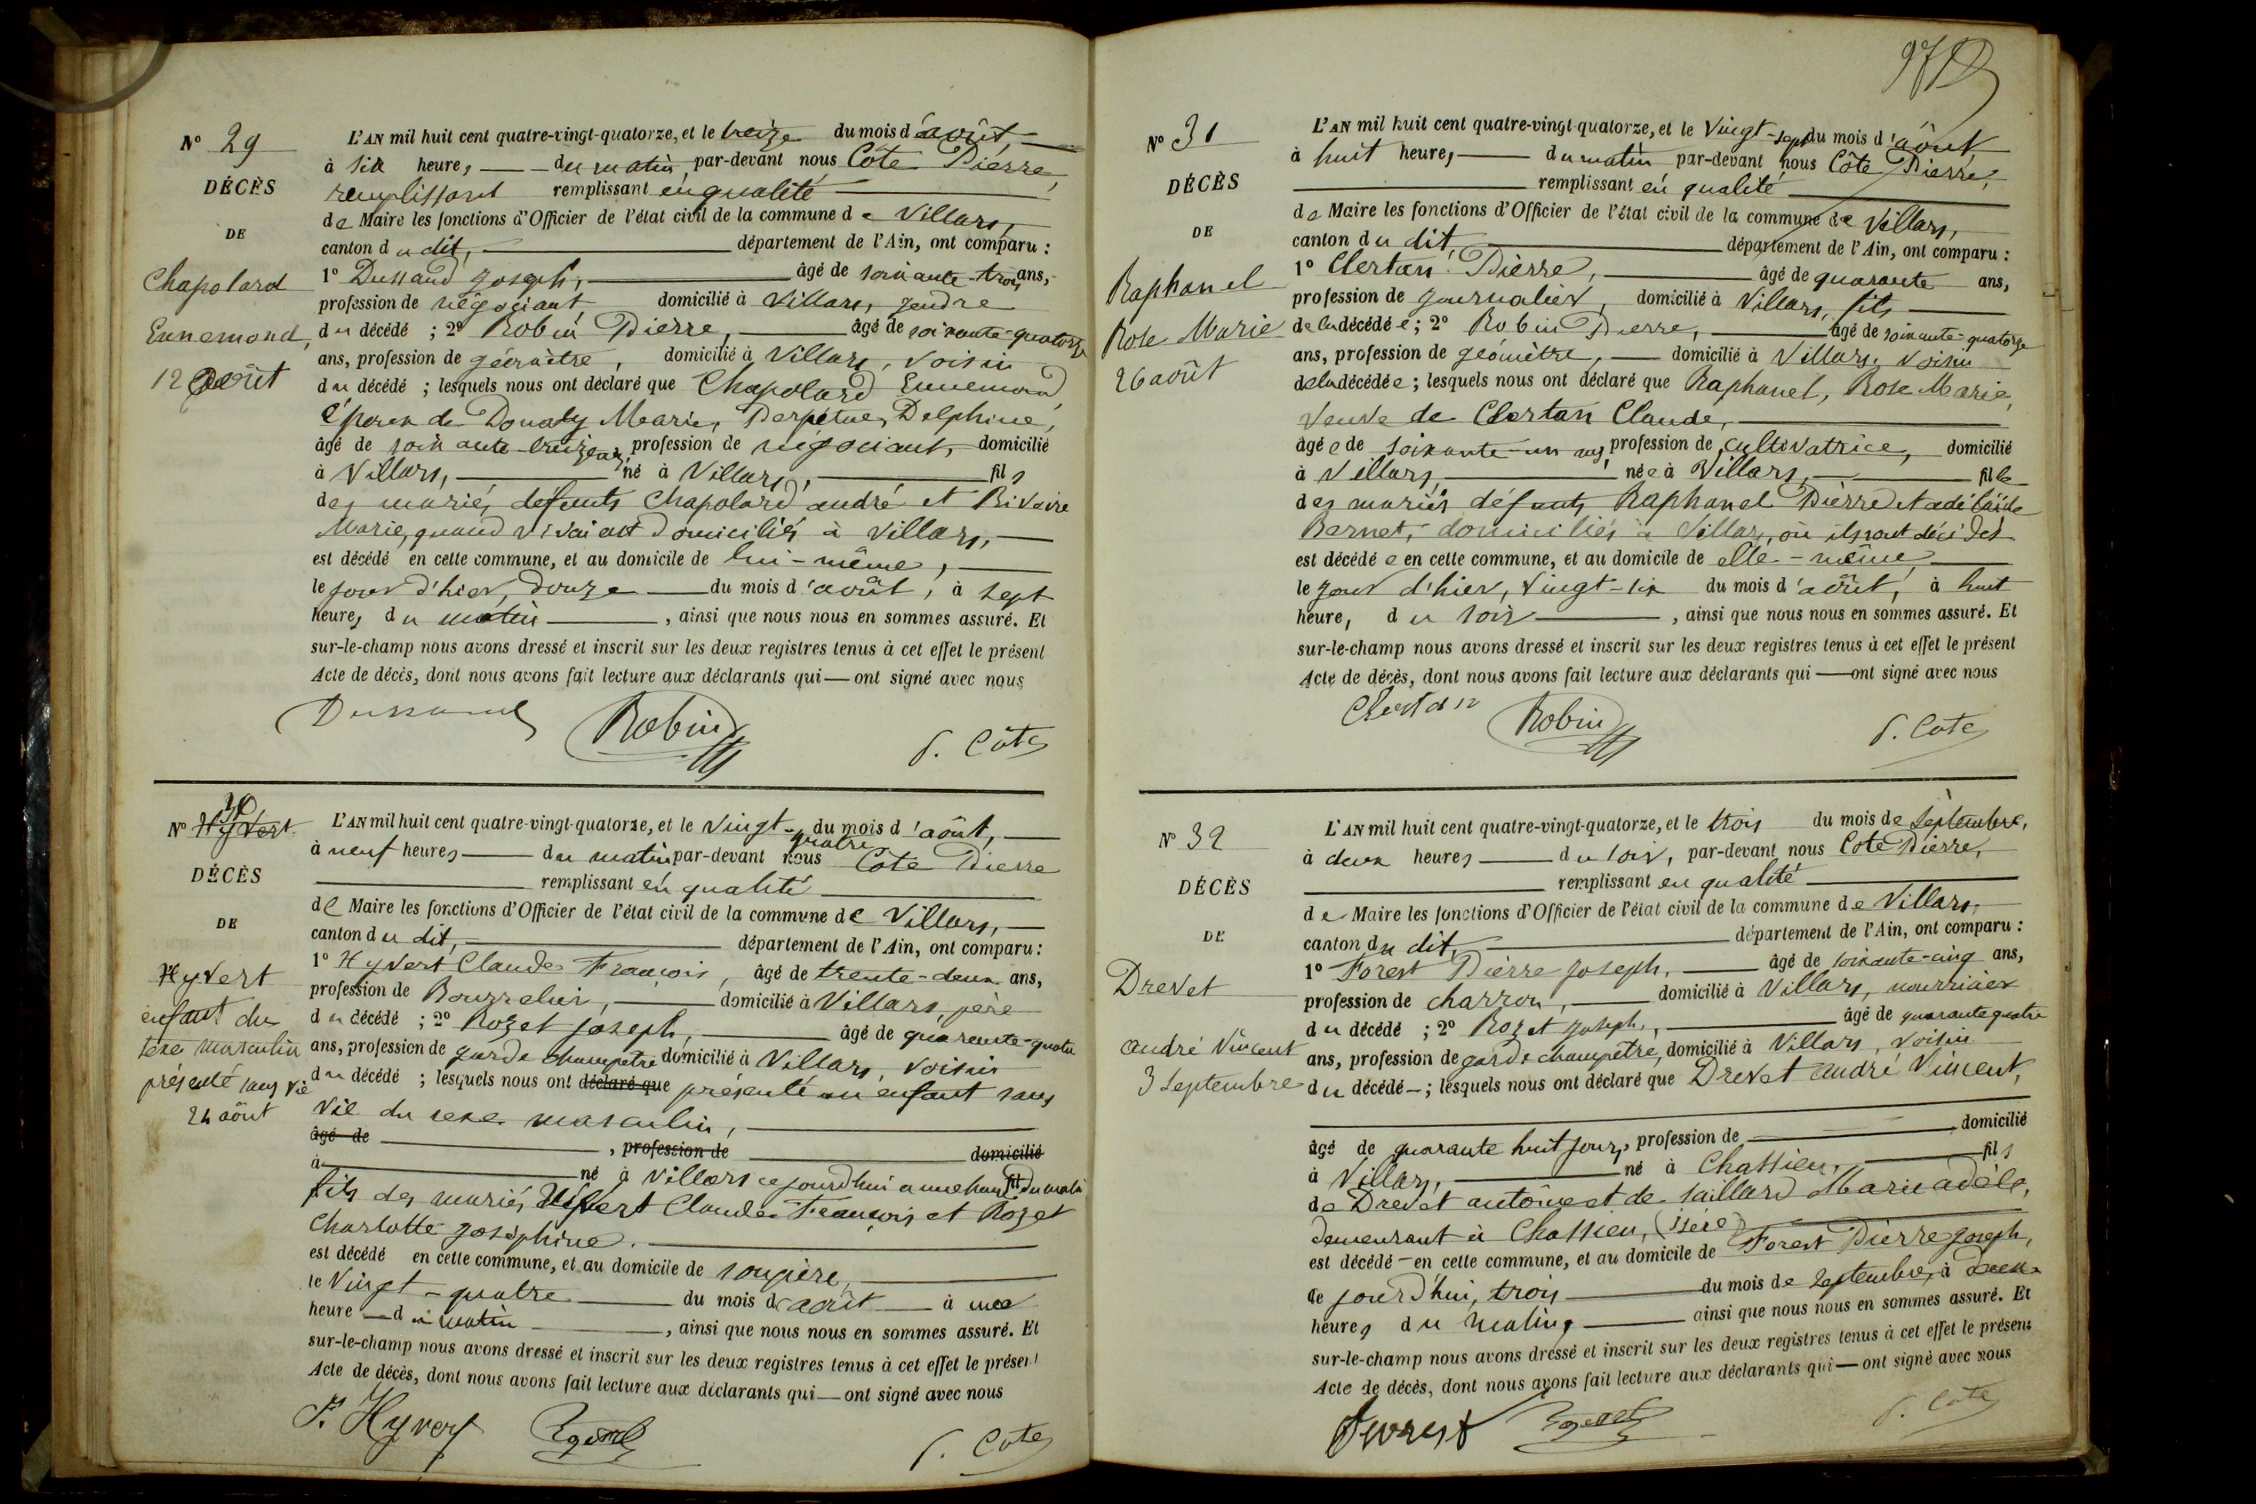 N° 29
DÉCÈS
DE
Chapolard
Ennemond,
12 août
L'AN mil huit cent quatre-vingt-quatorze, et le treize du mois d'août,
à six heures du matin, par-devant nous Côte Pierre,
remplissant remplissant en qualité
de Maire les fonctions d'Officier de l'état civil de la commune de Villars,
canton du dit, département de l'Ain, ont comparu :
1° Dussaud Joseph, âgé de soixante-trois ans,
profession de négociant domicilié à Villars, gendre
du décédé ; 2° Robin Pierre, âgé de soixante-quatorze
ans, profession de géomètre, domicilié à Villars, voisin
du décédé ; lesquels nous ont déclaré que Chapolard Ennemond,
époux de Donaty Marie, Perpétue, Delphine,
âgé de soixante-treize ans, profession de négociant, domicilié
à Villars, né à Villars, fils
des mariés défunts Chapolard andré et Rivoire
Marie, quand vivaient domiciliés à Villars,
est décédé en cette commune, et au domicile de lui-même,
le jour d'hier, douze du mois d'août, à sept
heures du matin, ainsi que nous nous en sommes assuré. Et
sur-le-champ nous avons dressé et inscrit sur les deux registres tenus à cet effet le présent
Acte de décès, dont nous avons fait lecture aux déclarants qui — ont signé avec nous
Dussaud Robin P. Côte
N° 30 Hyvert
DÉCÈS
DE
Hyvert
enfant du
sexe masculin
présenté sans vie
24 août
L'AN mil huit cent quatre-vingt-quatorze, et le vingt-quatre du mois d'août,
à neuf heures du matin par-devant nous Côte Pierre
remplissant en qualité
de Maire les fonctions d'Officier de l'état civil de la commune de Villars,
canton du dit, département de l'Ain, ont comparu :
1° Hyvert Claude François, âgé de trente-deux ans,
profession de Bourrelier, domicilié à Villars, père
du décédé ; 2° Rozet Joseph, âgé de quarante-quatre
ans, profession de garde champêtre domicilié à Villars, voisin
du décédé ; lesquels nous ont déclaré que présenté un enfant sans
vie du sexe masculin,
âgé de , profession de domicilié
à né à Villars ce jourd'hui a une heure du matin fil
fils des mariés Hyvert Claude François et Rozet
Charlotte Joséphine.
est décédé en cette commune, et au domicile de son père,
le Vingt-quatre du mois d'août à une
heure du matin, ainsi que nous nous en sommes assuré. Et
sur-le-champ nous avons dressé et inscrit sur les deux registres tenus à cet effet le présent
Acte de décès, dont nous avons fait lecture aux déclarants qui — ont signé avec nous
Hyvert P. Côte
N° 31
DÉCÈS
DE
Raphanel
Rose Marie
26 août
L'AN mil huit cent quatre-vingt-quatorze, et le vingt-sept du mois d'août
à huit heures du matin par-devant nous Côte Pierre,
remplissant en qualité
de Maire les fonctions d'Officier de l'état civil de la commune de Villars,
canton du dit, département de l'Ain, ont comparu :
1° Clertan Pierre, âgé de quarante ans,
profession de journalier, domicilié à Villars, fils
de la décédée ; 2° Robin Pierre, âgé de soixante-quatorze
ans, profession de géomètre, domicilié à Villars, voisin
de la décédée ; lesquels nous ont déclaré que Raphanel, Rose Marie,
veuve de Clertan Claude,
âgée de soixante-un ans, profession de cultivatrice, domicilié
à Villars, née à Villars, fille
des mariés défunts Raphanel Pierre et adélaïde
Bernet, domiciliés à Villars, où ils sont décédés
est décédée en cette commune, et au domicile de elle-même,
le jour d'hier, vingt-six du mois d'août, à huit
heures du soir, ainsi que nous nous en sommes assuré. Et
sur-le-champ nous avons dressé et inscrit sur les deux registres tenus à cet effet le présent
Acte de décès, dont nous avons fait lecture aux déclarants qui — ont signé avec nous
Clertan Robin P. Côte
N° 32
DÉCÈS
DE
Drevet
André Vincent
3 Septembre
L'AN mil huit cent quatre-vingt-quatorze, et le trois du mois de Septembre,
à deux heures du soir, par-devant nous Côte Pierre,
remplissant en qualité
de Maire les fonctions d'Officier de l'état civil de la commune de Villars,
canton du dit, département de l'Ain, ont comparu :
1° Forest Pierre Joseph, âgé de soixante-cinq ans,
profession de charron, domicilié à Villars, nourricier
du décédé ; 2° Rozet Joseph, âgé de quarante quatre
ans, profession de garde champêtre, domicilié à Villars, voisin
du décédé ; lesquels nous ont déclaré que Drevet André Vincent,
âgé de quarante huit jours, profession de domicilié
à Villars, né à Chassieu, fils
de Drevet antoine et de Saillard Marie adèle,
demeurant à Chassieu, (isère)
est décédé en cette commune, et au domicile de Forest Pierre Joseph,
ce jourd'hui, trois du mois de Septembre, à deux
heures du matin, ainsi que nous nous en sommes assuré. Et
sur-le-champ nous avons dressé et inscrit sur les deux registres tenus à cet effet le présent
Acte de décès, dont nous avons fait lecture aux déclarants qui — ont signé avec nous
P. Côte